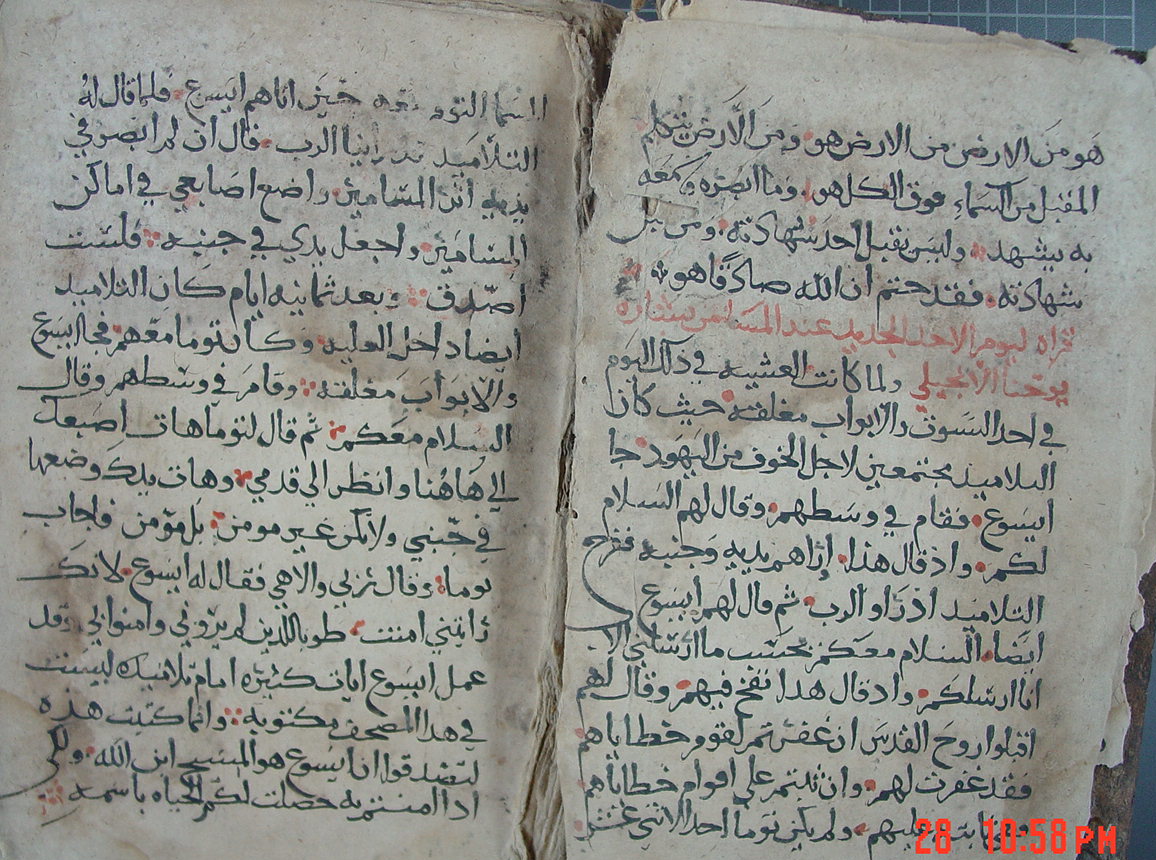 هو من الارض من الارض هو ومن الارض يتكلم
المقبل من السماء فوق الكل هو وما ابصره وسمعه
به يشهد وليس يقبل احد شهادته ومن قبل
شهادته فقد ختم ان الله صادقا هو
قراه ليوم الاحد الجديد عند المسا من بشاره
يوحنا الانجيلي ولما كانت العشيه في ذلك اليوم
في احد السبوت والابواب مغلقه حيث كان
التلاميد مجتمعين لاجل الخوف من اليهود جا
ايسوع فقام في وسطهم وقال لهم السلام
لكم واذ قال هذا اراهم يديه وجنبه ففرح
التلاميد اذ راو الرب ثم قال لهم ايسوع
ايضا السلام معكم بحسب ما ارسلني الاب
انا ارسلكم واذ قال هدا نفخ فيهم وقال لهم
اقبلوا روح القدس ان غفرتم لقوم خطاياهم
فقد غفرت لهم وان ثبتم على اقوام خطاياهم
فهي ثابته عليهم ولم يكن توما احد الاثني عشر
المسما التوم معه حين اتاهم ايسوع فلما قال له
التلاميد قد راينا الرب قال ان لم ابصر في
يديه اثر المسامير واضع اصابعي في اماكن
المسامير واجعل يدي في جنبه فلست
اصدق وبعد ثمانيه ايام كان التلاميد
ايضا داخل العليه وكان توما معهم فجا ايسوع
والابواب مغلقه وقام في وسطهم وقال
السلام معكم ثم قال لتوما هات اصبعك
الي هاهنا وانظر الي قدمي وهات يدك وضعها
في جنبي ولا تكن غير مومن بل مومن فاجاب
توما وقال ربي والاهي فقال له ايسوع لانك
رايتني امنت طوبا للدين لم يروني وامنوا بي وقد
عمل ايسوع ايات كثيره امام تلاميده ليست
في هدا المصحف مكتوبه وانما كتبت هذه
لتصدقوا ان ايسوع هو المسيح ابن الله ولكي
ادا امنتم به حصلت لكم الحياه باسمه
28 10:58 PM